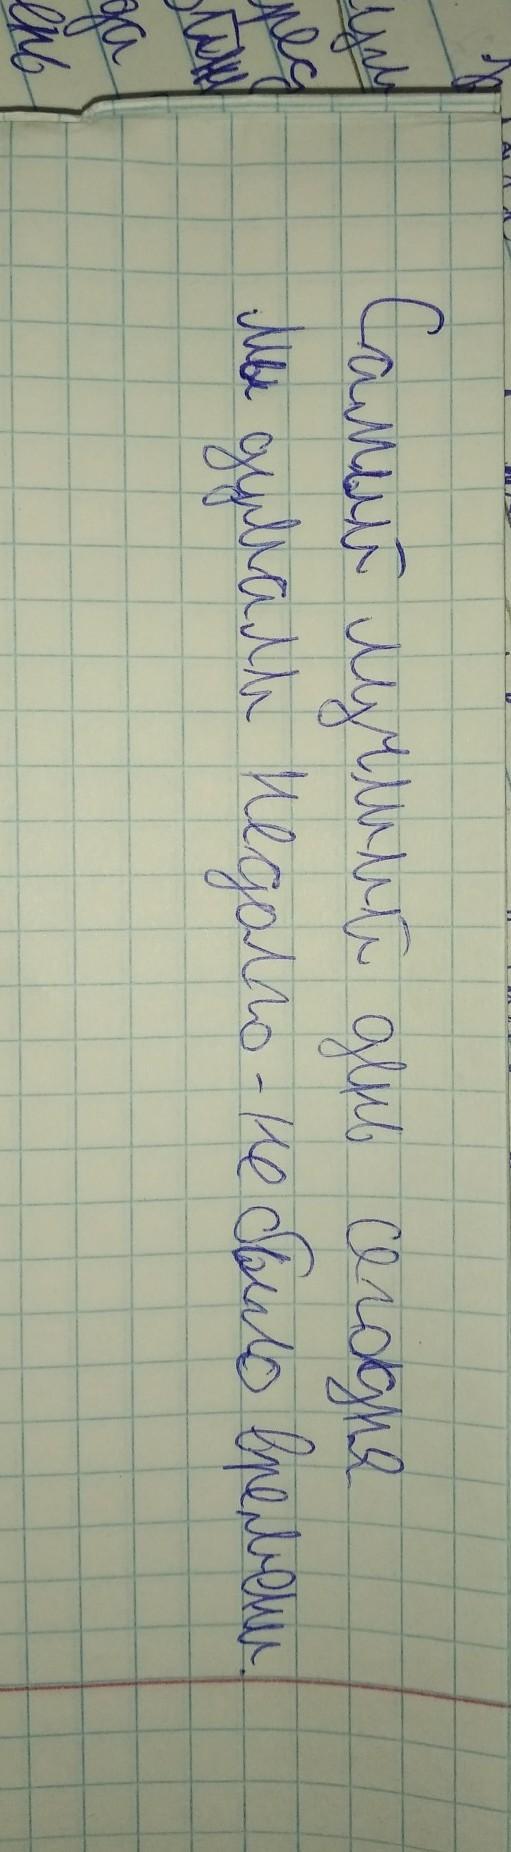 Самый лучший день сегодня
мы думали недолго - не было времени.